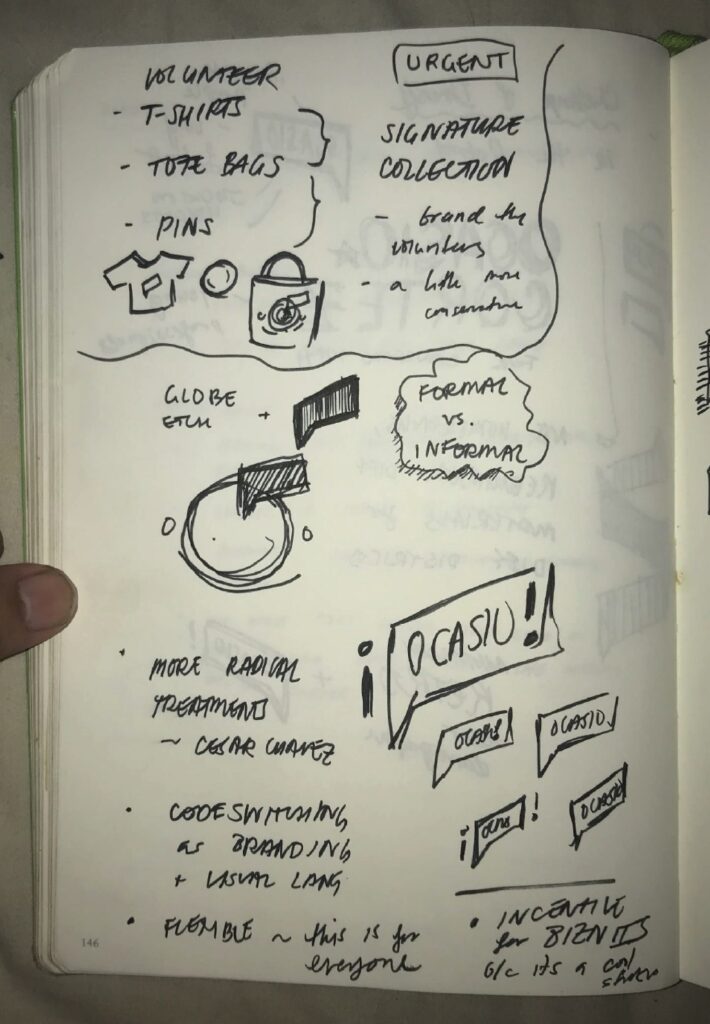 VOLUNTEER
- T-SHIRTS
- TOTE BAGS
- PINS
URGENT
SIGNATURE
COLLECTION
- brand the
volunteers
- a little more
conservative
GLOBE
ETCH +
FORMAL
vs.
INFORMAL
¡OCASIO!
• MORE RADICAL
TREATMENT
~ CESAR CHAVEZ
OCASIO
OCASIO
¡ !
OCASIO
• CODESWITCHING
as BRANDING
+ VISUAL LANG
• FLEXIBLE ~ this is for
everyone
• INCENTIVE
for
b/c it's a cool
146